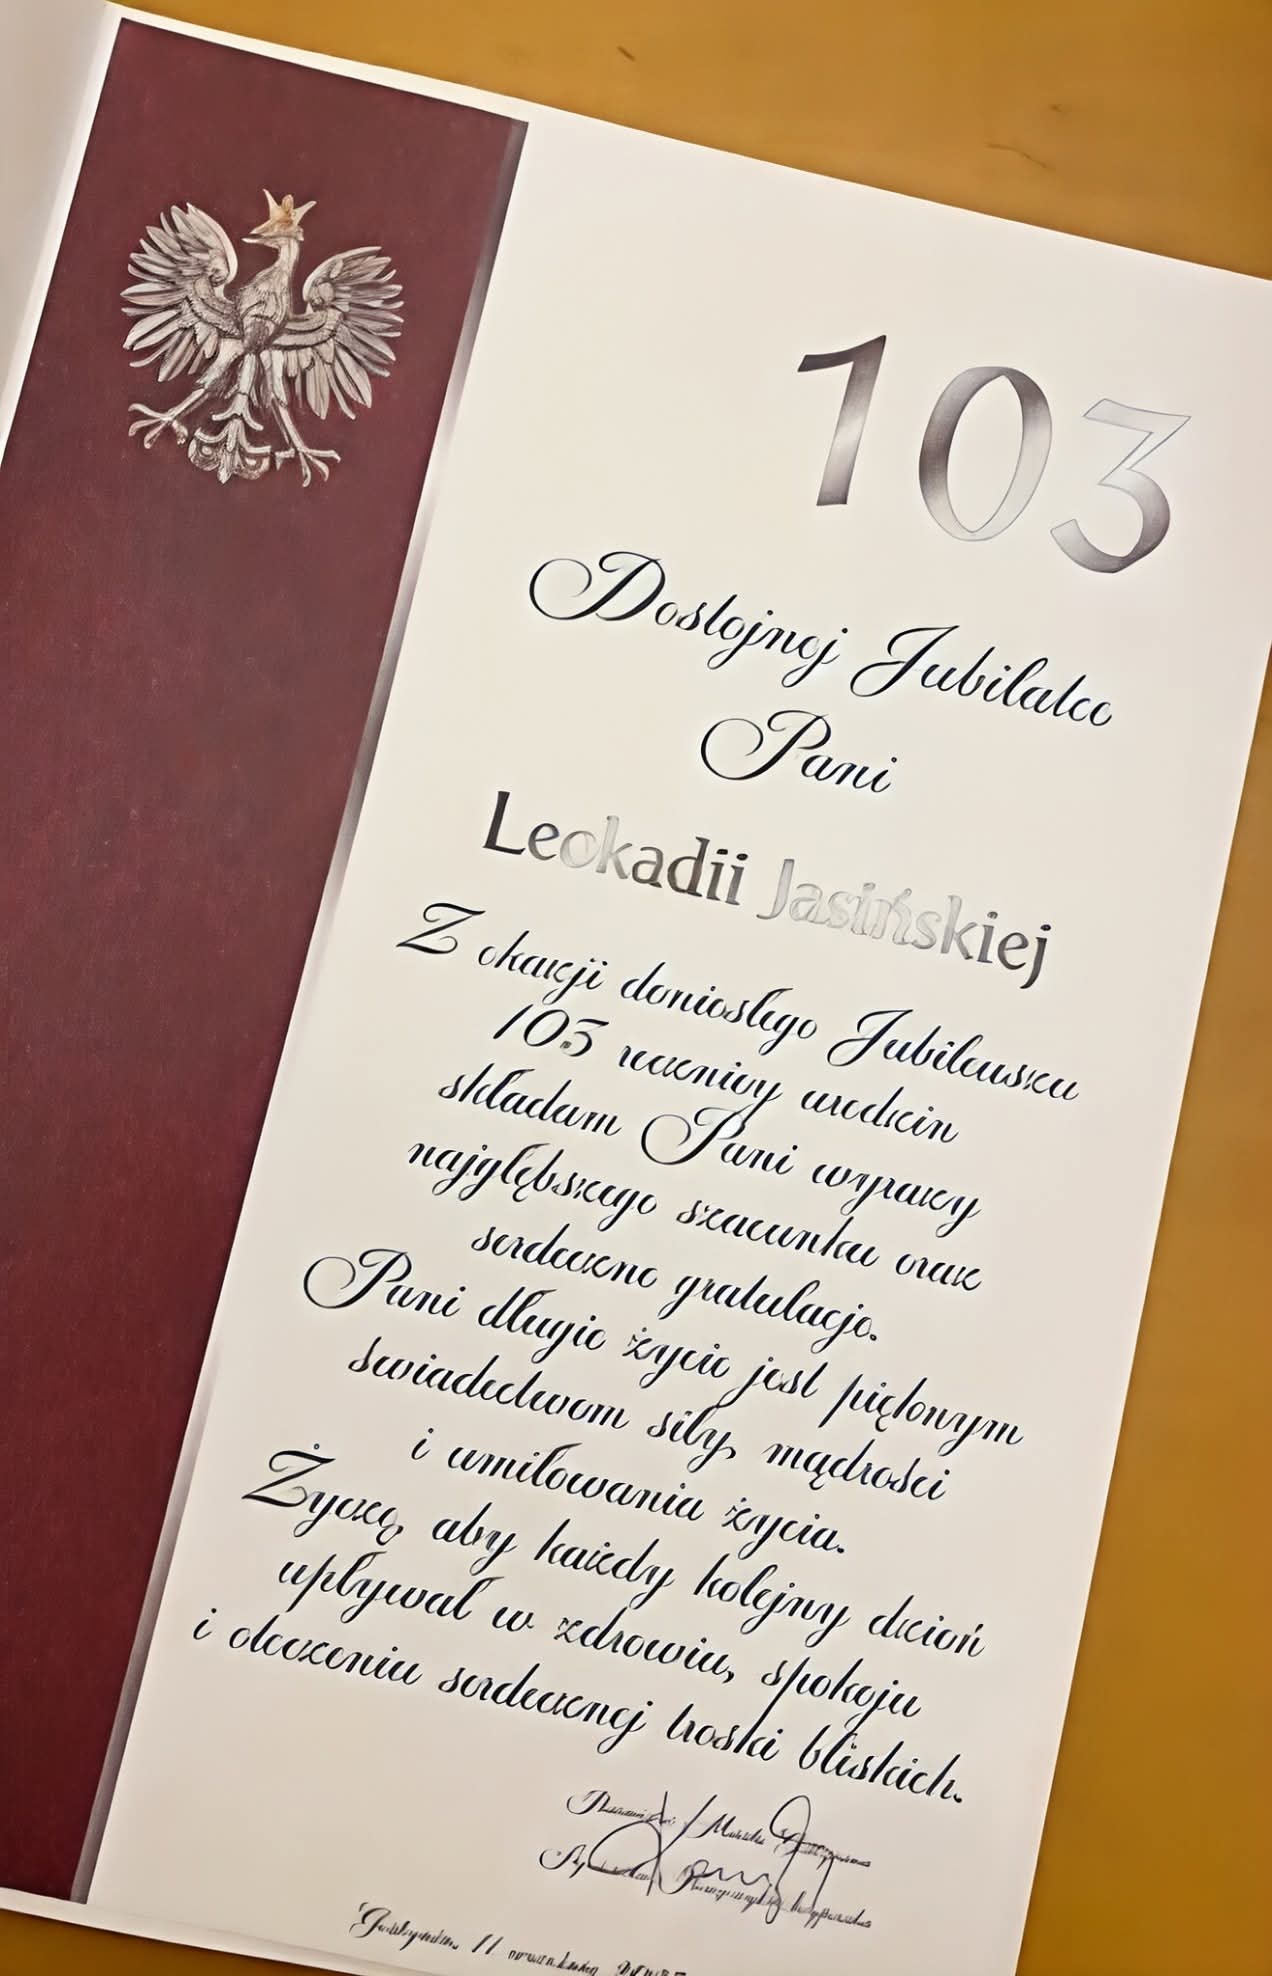 103
Dostojnej Jubilatce
Pani
Leokadii Jasińskiej
Z okazji doniosłego Jubileuszu
103 rocznicy urodzin
składam Pani wyrazy
najgłębszego szacunku oraz
serdeczne gratulacje.
Pani długie życie jest pięknym
świadectwem siły, mądrości
i umiłowania życia.
Życzę, aby każdy kolejny dzień
upływał w zdrowiu, spokoju
i otoczeniu serdecznej troski bliskich.
11